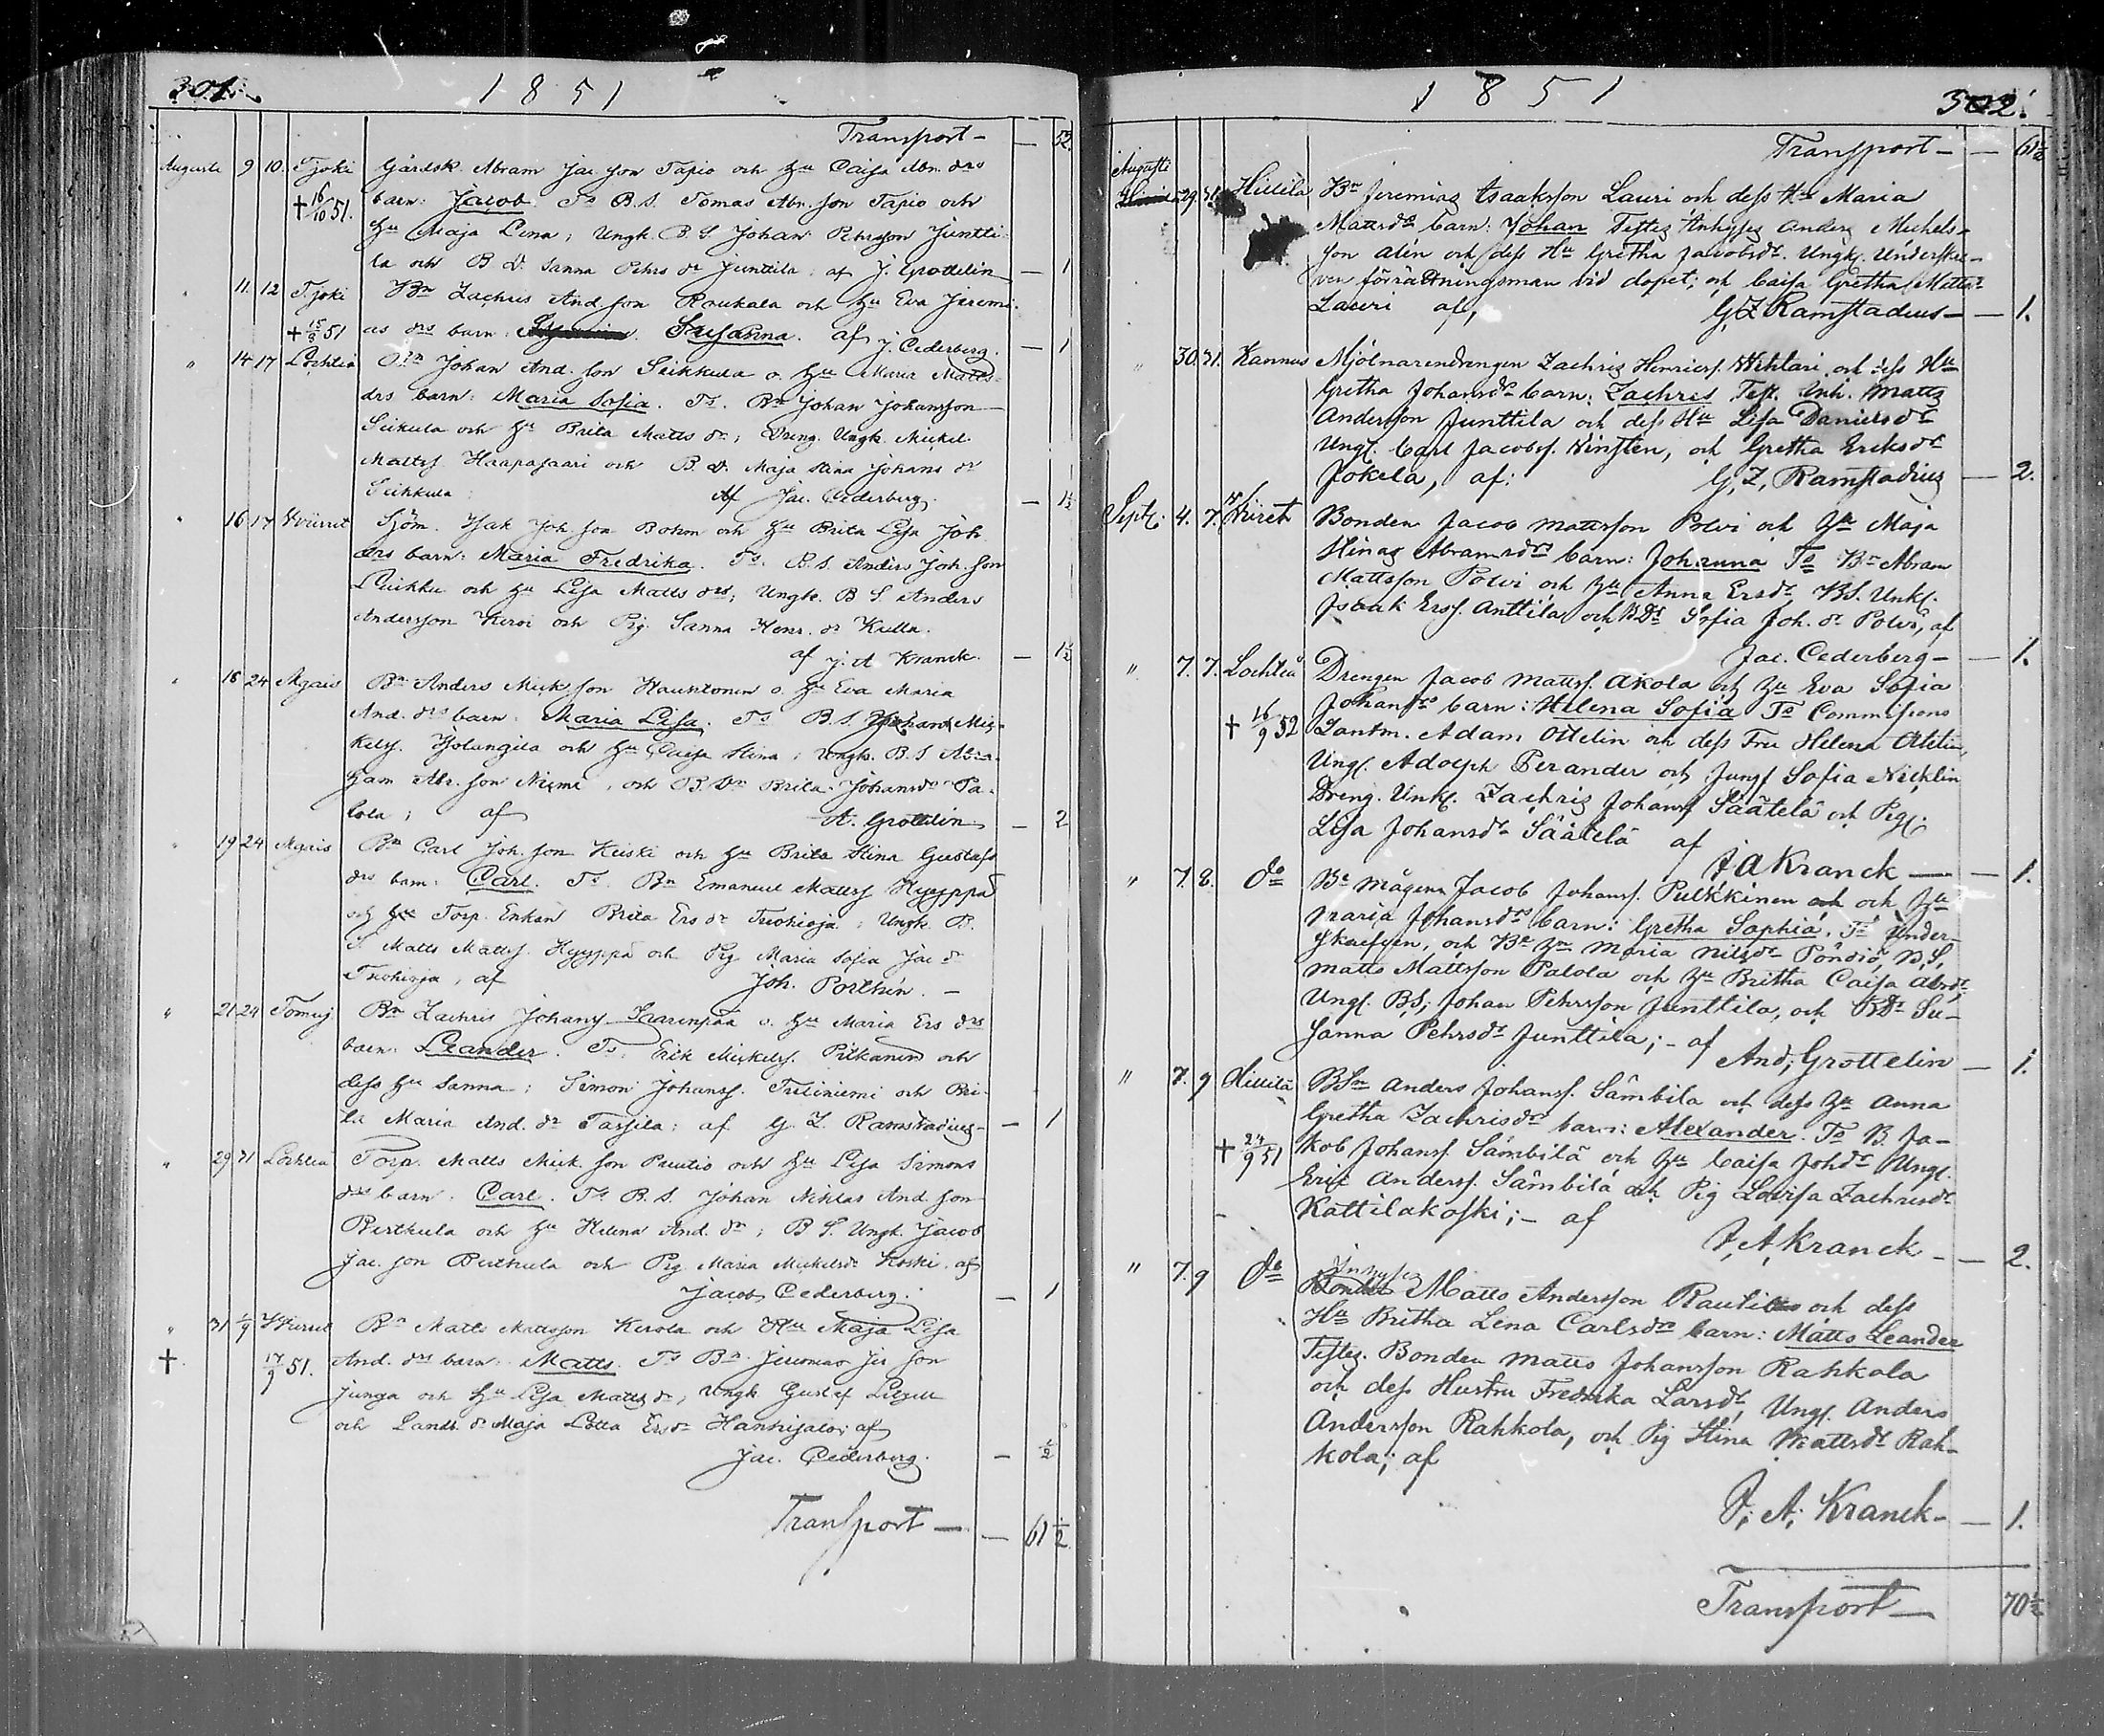 301.
1851
Transport — — 52.
Augusti 9 10. T.joki Gårdsk. Abram Jac. son Tapio och Hu Caisa Abr. drs
† 16/10 51. barn: Jacob. Ts B.S. Tomas Abr. son Tapio och
Hu Maja Lena; Ungk. B S Johan Pehrsson Juntti-
la och B D. Sanna Pehrs dr Junttila: af J. Grottelin — 1
11. 12 T.joki Bn Zachris And. son Roukala och Hu Eva Jeremi-
† 15/9 51 as drs barn: Susanna. af J. Cederberg. — 1
" 14 17 Lochteå Johan And. son Seikkula o. Hu Maria Matts
drs barn: Maria Sofia. Ts. Bn Johan Johansson
Seikula och Hu Brita Matts dr; Dreng. Ungk. Mickel
Matts. Haapasaari och B. D. Maja Stina Johans dr
Seikkula: Af Jac. Cederberg. — 1½
" 16 17 Wiirret Sjöm. Isak Joh. son Bohm och Hu Brita Lisa Joh.
drs barn: Maria Fredrika. Ts. B.S. Anders Joh. son
Luikku och Hu Lisa Matts drs; Ungk. B S. Anders
Andersson Kervi och Pig. Sanna Henr. dr Kulla.
af J. A Kranck. — 1½
" 18 24 Ylgais Bn Anders Mick. son Hauhtonen o. Hu Eva Maria
And. drs barn: Maria Lisa. Ts B.S. Johan Mic-
kels. Hylangila och Hu Caisa Stina; Ungk. B.S Abra-
ham Abr. son Niemi, och B. Dr Brita Johansdr Pa-
lola; af A. Grottelin — 2
" 19 24 Ylgais Bn Carl Joh. son Keiski och Hu Brita Stina Gustafs
drs barn: Carl. Ts. Bn Emanuel Matts. Hyyppä
och Torp. Enkan Brita Ers dr Tuohioja; Ungk. B.
S. Matts Matts. Hyyppä och Pig Maria Sofia Jac dr
Tuohioja, af Joh. Porthén. —
" 21 24 Tomuj. Bn Zachris Johans. Saarenpää o. Hu Maria Ers drs
barn: Leander. Ts. Erik Mickels. Pitkänen och
dess Hu Sanna; Simon Johans. Tuliniemi och Bri-
ta Maria And. dr Tassila: af G. Z. Ramstadius — 1
" 29 31 Lochteå Torp. Matts Mick. son Puutio och Hu Lisa Simons
drs barn: Carl. Ts B.S. Johan Niklas And. son
Peitkula och Hu Helena And. dr; B S. Ungk. Jacob
Jac. son Peitkula och Pig Maria Mickelsdr Koski. af
Jacob Cederberg. — 1
" 31 1/9 Wiirret Bn Matts Mattsson Kerola och Hu Maja Lisa
†. 17/9 51. And. drs barn: Matts. Ts Bn Jeremias Jer son
Junga och Hu Lisa Matts dr; Ungk Gustaf
och Landb. dr Maja Lotta Ersdr af
Jac. Cederberg. — ½
Transport — — 61 ½
1851
302.
Transport — — 61½
Augusti
29. 31. Hillilä Bn Jeremias Isaaksson Lauri och dess Hu Maria
Mattsdrs barn: Johan Testes Inhyses Anders Michels-
son Alén och dess Hu Gretha Jacobsdr. Ungk. Underskre-
ven förrättningsman vid dopet; och Caisa Gretha Mattsdr
Lauri af, G Z Ramstadius — — 1.
" 30. 31. Kannus Mjölnaredrengen Zachris Henricss. Wihtari och dess Hu
Gretha Johansdrs barn: Zachris Test. Inh. Matts
Andersson Junttila och dess Hu Lisa Danielsdr
Ungk. Carl Jacobss. Winsten, och Gretha Ericksdr
Jokela, af: G, Z, Ramstadius — 2.
Septr. 4. 7. Wiiret Bonden Jacob Mattsson Polvi och Hu Maja
Stinas Abramsdrs barn: Johanna Ts Bn Abram
Mattsson Polvi och Hu Anna Ersdr BS. Unk.
Isaak Erss. Anttila och BDr Sofia Joh. dr Polvi, af
Jac. Cederberg — — 1.
" 7. 7. Lochteå Drengen Jacob Mattss. Akola och Hu Eva Sofia
Johansdrs barn: Helena Sofia Ts Commissions
† 16/9 52 Lantm. Adam Ottelin och dess Fru Helena Ottelin,
Ungk. Adolph Perander och Jungf Sofia Nicklin
Dreng. Unk. Zachris Johans Säätelä och Pig.
Lisa Johansdr Säätelä af
J A Kranck — — 1.
" 7. 8. do Be mågen Jacob Johanss. Pulkkinen och Hu
Maria Johansdrs barn: Gretha Sophia. Ts Under-
skrefven, och Be Hu Maria Nilsdr Pöndiö, B.S.
Matts Mattsson Palola och Hu Britha Caisa Abrdr,
Ungk. BS, Johan Pehrsson Junttila, och BDr Su-
sanna Pehrsdr Junttila; - af And, Grottelin — 1.
" 7. 9 Hillilä BSn Anders Johanss. Sämbilä och dess Hu Anna
Gretha Zachrisdrs barn: Alexander. Ts B. Ja-
† 24/9 51 kob Johanss. Sämbilä och Hu Caisa Johdr Ungk.
Eric Anderss. Sämbilä och Pig Lovisa Zachrisdr
Kattilakoski; - af
J, A, Kranck — — 2.
" 7. 9 do Inhyses Matts Andersson Rautio och dess
Hu Britha Lena Carlsdrs barn: Matts Leander
Testes. Bonden Matts Johansson Rahkola
och dess Hustru Fredrika Larsdr, Ungk. Anders
Andersson Rahkola, och Pig Stina Mattsdr Rah-
kola; af
J; A; Kranck — — 1.
Transport — 70½